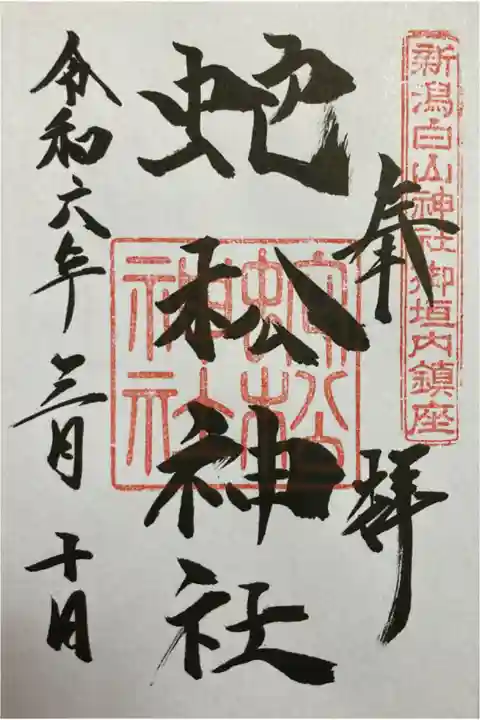 新潟白山神社御垣内鎮座
奉拝
蛇松神社
蛇松
神社
令和六年三月十月